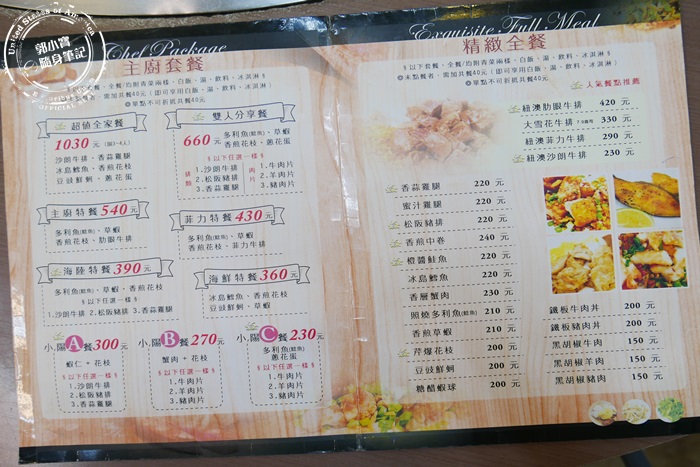 United States of
郭小寶
隨身筆記
OFFICIAL
Chef Package
主廚套餐
超值全家餐
1030元(限3-4人)
沙朗牛排、香蒜雞腿
冰島鱈魚、香煎花枝
豆豉鮮蚵、蔥花蛋
雙人分享餐
660元
多利魚(鯰魚)、草蝦
香煎花枝、蔥花蛋
§以下任選一樣§
排類
1.沙朗牛排
2.松阪豬排
3.香蒜雞腿
肉片
1.牛肉片
2.羊肉片
3.豬肉片
主廚特餐540元
多利魚(鯰魚)、草蝦
香煎花枝、肋眼牛排
菲力特餐430元
多利魚(鯰魚)、草蝦
香煎花枝、菲力牛排
海陸特餐390元
多利魚(鯰魚)、草蝦、香煎花枝
§以下任選一樣§
1.沙朗牛排 2.松阪豬排 3.香蒜雞腿
海鮮特餐360元
冰島鱈魚、香煎花枝
豆豉鮮蚵、草蝦
小陽A餐300元
蝦仁+花枝
§以下任選一樣§
1.沙朗牛排
2.松阪豬排
3.香蒜雞腿
小陽B餐270元
蟹肉+花枝
§以下任選一樣§
1.牛肉片
2.羊肉片
3.豬肉片
小陽C餐230元
多利魚(鯰魚)
蔥花蛋
§以下任選一樣§
1.牛肉片
2.羊肉片
3.豬肉片
Exquisite Full Meal
精緻全餐
§以下套餐、全餐/均附青菜兩樣、白飯、湯、飲料、冰淇淋§
◎未點餐者、需加共餐40元(即可享用白飯、湯、飲料、冰淇淋)
◎單點不可折抵共餐40元
人氣餐點推薦
紐澳肋眼牛排 420元
大雪花牛排 330元
紐澳菲力牛排 290元
紐澳沙朗牛排 230元
香蒜雞腿 220元
蜜汁雞腿 220元
松阪豬排 220元
香煎中卷 240元
橙醬鮭魚 220元
冰島鱈魚 220元
香層蟹肉 230元
照燒多利魚(鯰魚) 210元
香煎草蝦 210元
芹爆花枝 200元
豆豉鮮蚵 200元
糖醋蝦球 200元
鐵板牛肉丼 200元
鐵板豬肉丼 200元
黑胡椒牛肉 150元
黑胡椒羊肉 150元
黑胡椒豬肉 150元